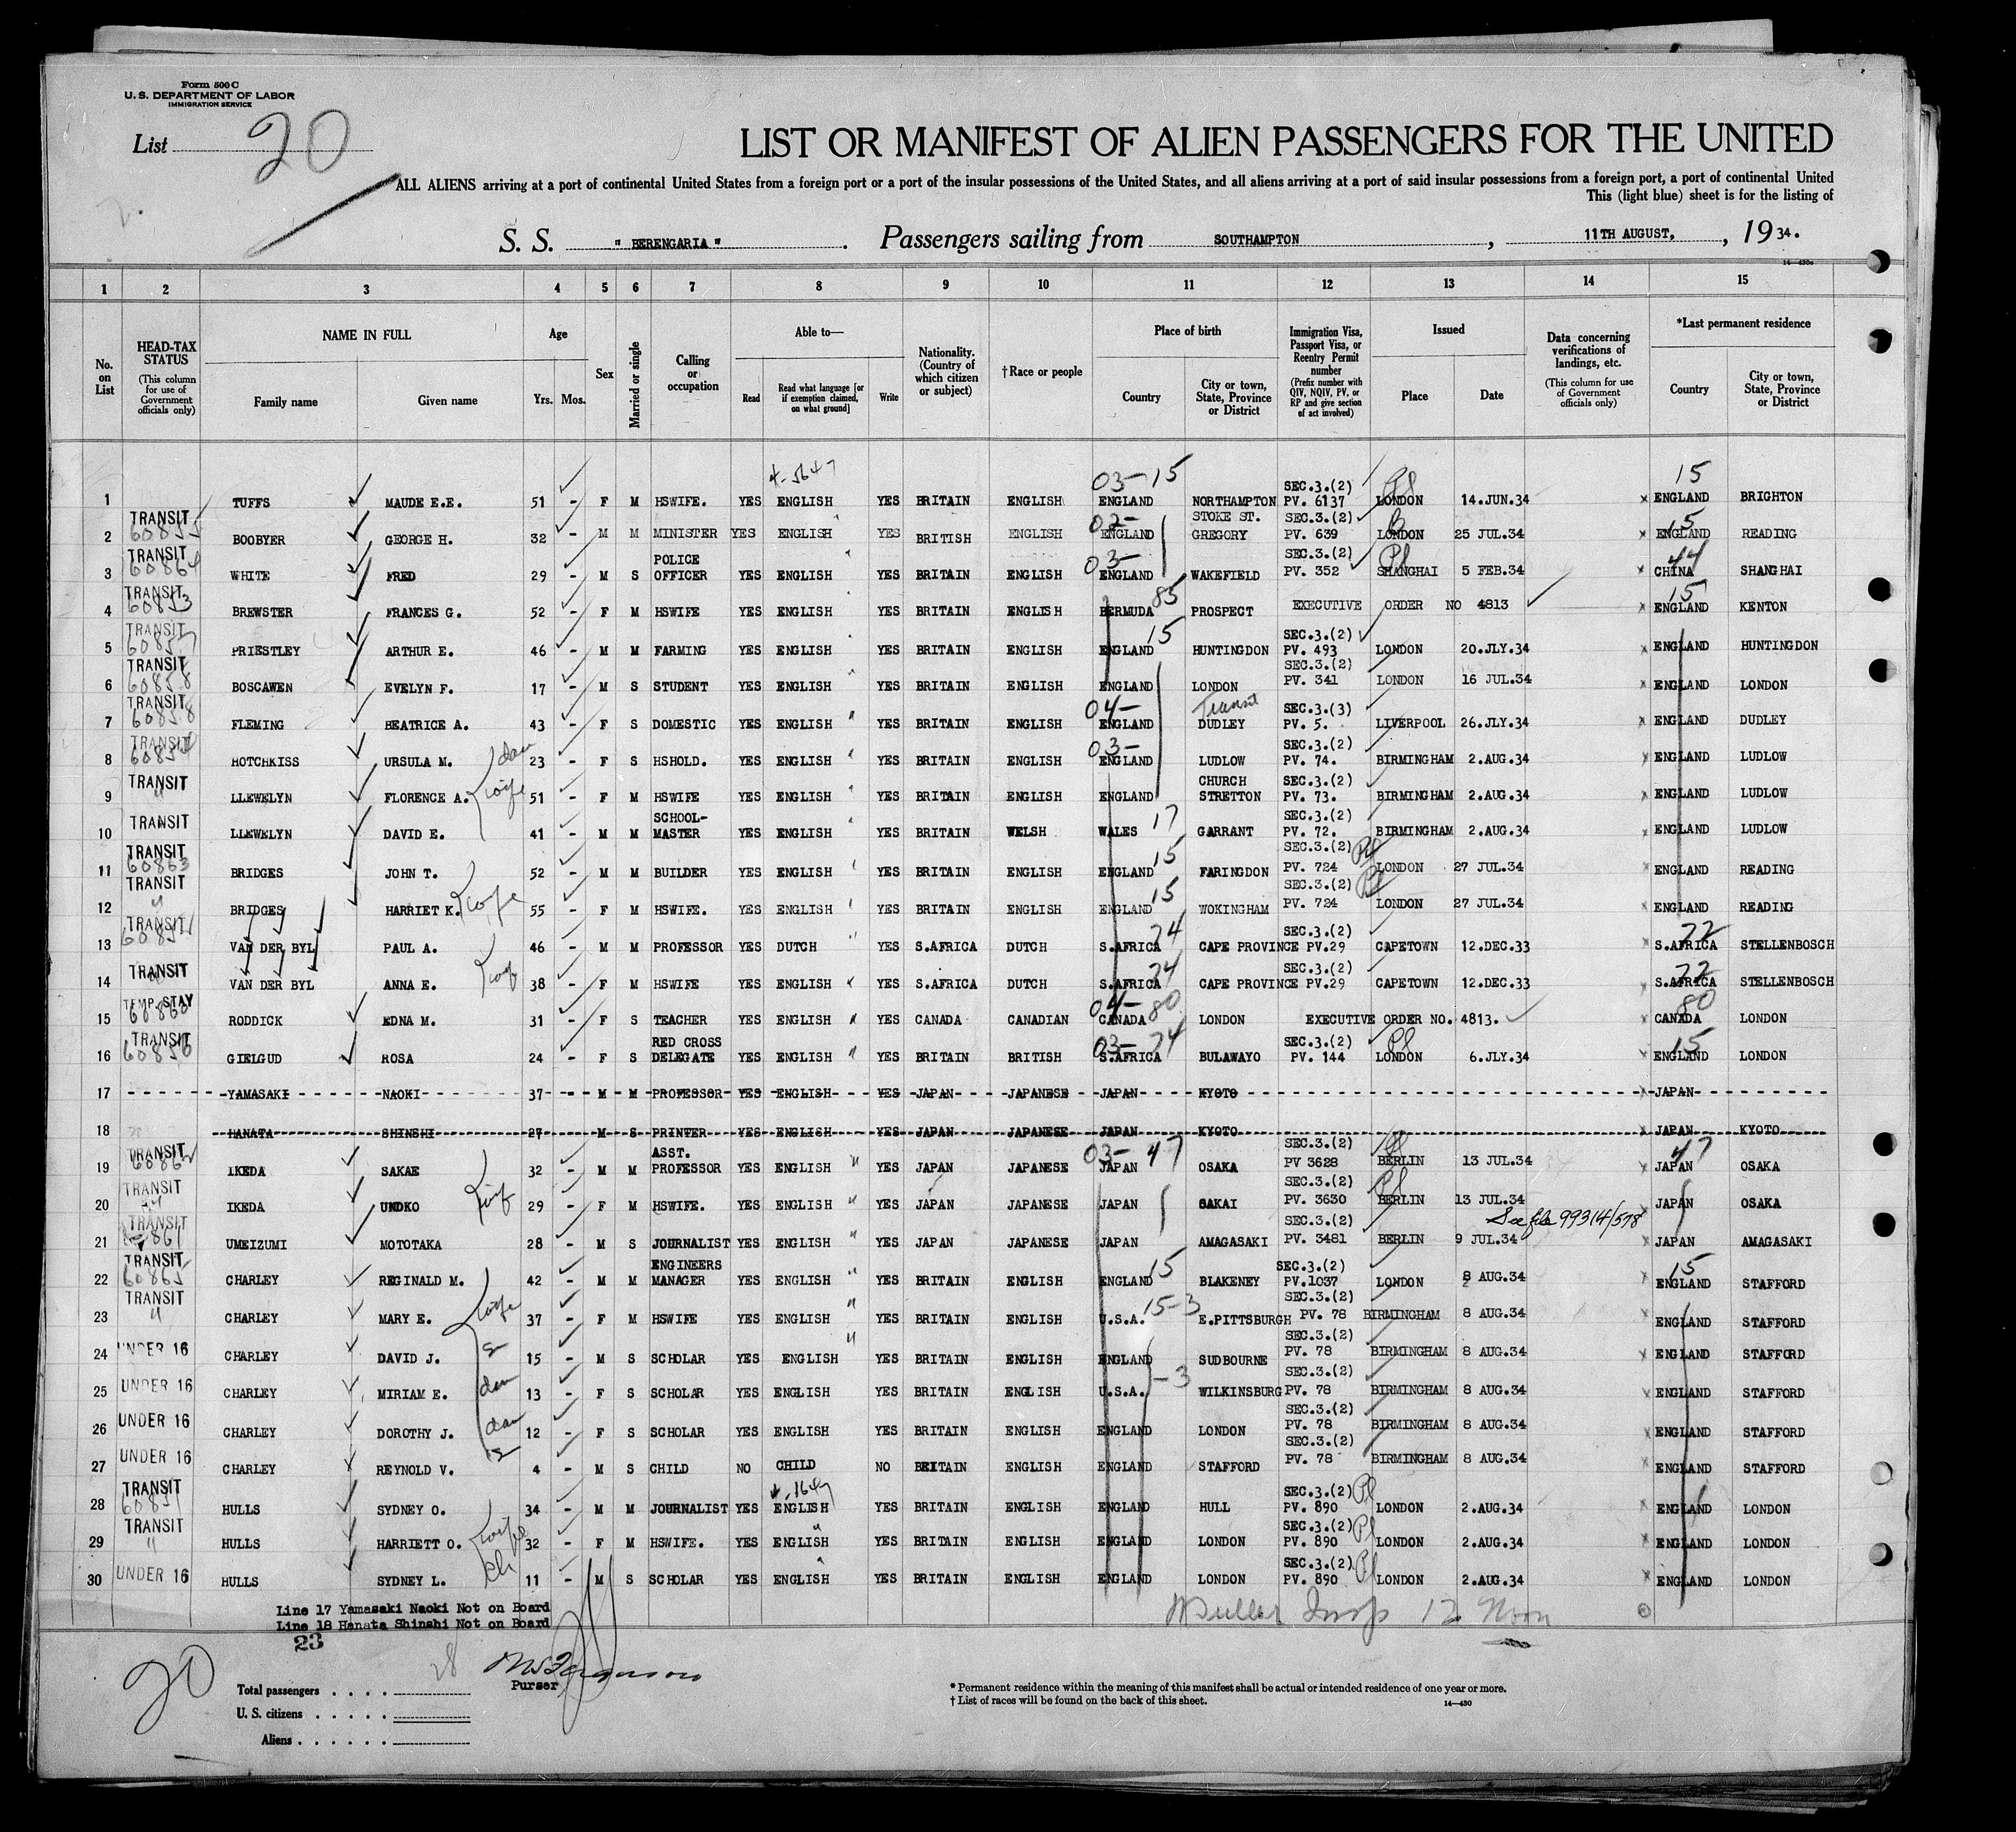 Form 500 C
U. S. DEPARTMENT OF LABOR
IMMIGRATION SERVICE
List 20
LIST OR MANIFEST OF ALIEN PASSENGERS FOR THE UNITED
ALL ALIENS arriving at a port of continental United States from a foreign port or a port of the insular possessions of the United States, and all aliens arriving at a port of said insular possessions from a foreign port, a port of continental United
This (light blue) sheet is for the listing of
S. S. " BERENGARIA " . Passengers sailing from SOUTHAMPTON , 11TH AUGUST, , 19 34.
14—430a
1 2 3 4 5 6 7 8 9 10 11 12 13 14 15
No. on List
HEAD-TAX STATUS (This column for use of Government officials only)
NAME IN FULL
Family name Given name
Age
Yrs. Mos.
Sex
Married or single
Calling or occupation
Able to—
Read Read what language [or if exemption claimed, on what ground] Write
Nationality. (Country of which citizen or subject)
†Race or people
Place of birth
Country City or town, State, Province or District
Immigration Visa, Passport Visa, or Reentry Permit number (Prefix number with QIV, NQIV, PV, or RP and give section of act involved)
Issued
Place Date
Data concerning verifications of landings, etc. (This column for use of Government officials only)
*Last permanent residence
Country City or town, State, Province or District
1 TUFFS MAUDE E.E. 51 - F M HSWIFE. YES ENGLISH YES BRITAIN ENGLISH 03-15 ENGLAND NORTHAMPTON SEC.3.(2) PV. 6137 LONDON 14.JUN.34 x 15 ENGLAND BRIGHTON
2 TRANSIT 60855 BOOBYER GEORGE H. 32 - M M MINISTER YES ENGLISH YES BRITISH ENGLISH 02- ENGLAND STOKE ST. GREGORY SEC.3.(2) PV. 639 LONDON 25 JUL.34 x 15 ENGLAND READING
3 TRANSIT 60864 WHITE FRED 29 - M S POLICE OFFICER YES ENGLISH YES BRITAIN ENGLISH 03- ENGLAND WAKEFIELD SEC.3.(2) PV. 352 SHANGHAI 5 FEB.34 x 44 CHINA SHANGHAI
4 TRANSIT 60853 BREWSTER FRANCES G. 52 - F M HSWIFE YES ENGLISH YES BRITAIN ENGLISH 85 BERMUDA PROSPECT EXECUTIVE ORDER NO 4813 x 15 ENGLAND KENTON
5 TRANSIT 60857 PRIESTLEY ARTHUR E. 46 - M M FARMING YES ENGLISH YES BRITAIN ENGLISH 15 ENGLAND HUNTINGDON SEC.3.(2) PV. 493 LONDON 20.JLY.34 x ENGLAND HUNTINGDON
6 TRANSIT 60858 BOSCAWEN EVELYN F. 17 - M S STUDENT YES ENGLISH YES BRITAIN ENGLISH ENGLAND LONDON SEC.3.(2) PV. 341 LONDON 16 JUL.34 x ENGLAND LONDON
7 TRANSIT 60858 FLEMING BEATRICE A. 43 - F S DOMESTIC YES ENGLISH YES BRITAIN ENGLISH 04- ENGLAND Transit DUDLEY SEC.3.(3) PV. 5. LIVERPOOL 26.JLY.34 x ENGLAND DUDLEY
8 TRANSIT HOTCHKISS URSULA M. dau 23 - F S HSHOLD. YES ENGLISH YES BRITAIN ENGLISH 03- ENGLAND LUDLOW SEC.3.(2) PV. 74. BIRMINGHAM 2.AUG.34 x ENGLAND LUDLOW
9 TRANSIT " LLEWELYN FLORENCE A. wife 51 - F M HSWIFE YES ENGLISH YES BRITAIN ENGLISH ENGLAND CHURCH STRETTON SEC.3.(2) PV. 73. BIRMINGHAM 2.AUG.34 x ENGLAND LUDLOW
10 TRANSIT LLEWELYN DAVID E. 41 - M M SCHOOL-MASTER YES ENGLISH YES BRITAIN WELSH WALES 17 GARRANT SEC.3.(2) PV. 72. BIRMINGHAM 2.AUG.34 x ENGLAND LUDLOW
11 TRANSIT 60863 BRIDGES JOHN T. 52 - M M BUILDER YES ENGLISH YES BRITAIN ENGLISH 15 ENGLAND FARINGDON SEC.3.(2) PV. 724 LONDON 27 JUL.34 x ENGLAND READING
12 TRANSIT " BRIDGES HARRIET K. wife 55 - F M HSWIFE. YES ENGLISH YES BRITAIN ENGLISH 15 ENGLAND WOKINGHAM SEC.3.(2) PV. 724 LONDON 27 JUL.34 x ENGLAND READING
13 TRANSIT VAN DER BYL PAUL A. 46 - M M PROFESSOR YES DUTCH YES S.AFRICA DUTCH 74 S.AFRICA CAPE PROVINCE SEC.3.(2) PV.29 CAPETOWN 12.DEC.33 x 72 S.AFRICA STELLENBOSCH
14 TRANSIT VAN DER BYL ANNA E. wife 38 - F M HSWIFE YES ENGLISH YES S.AFRICA DUTCH 74 S.AFRICA CAPE PROVINCE SEC.3.(2) PV.29 CAPETOWN 12.DEC.33 x 72 S.AFRICA STELLENBOSCH
15 TEMP. STAY 60860 RODDICK EDNA M. 31 - F S TEACHER YES ENGLISH YES CANADA CANADIAN 04-80 CANADA LONDON EXECUTIVE ORDER NO. 4813. x 80 CANADA LONDON
16 TRANSIT 60856 GIELGUD ROSA 24 - F S RED CROSS DELEGATE YES ENGLISH YES BRITAIN BRITISH 03-74 S.AFRICA BULAWAYO SEC.3.(2) PV. 144 LONDON 6.JLY.34 x 15 ENGLAND LONDON
17 YAMASAKI NAOKI 37 - M M PROFESSOR YES ENGLISH YES JAPAN JAPANESE JAPAN KYOTO x JAPAN
18 HANATA SHINSHI 27 M S PRINTER YES ENGLISH YES JAPAN JAPANESE JAPAN KYOTO JAPAN KYOTO
19 TRANSIT 60862 IKEDA SAKAE 32 - M M ASST. PROFESSOR YES ENGLISH YES JAPAN JAPANESE 03-47 JAPAN OSAKA SEC.3.(2) PV 3628 BERLIN 13 JUL.34 x 47 JAPAN OSAKA
20 TRANSIT " IKEDA UNDKO wife 29 - F M HSWIFE. YES ENGLISH YES JAPAN JAPANESE JAPAN SAKAI SEC.3.(2) PV. 3630 BERLIN 13 JUL.34 x JAPAN OSAKA
See file 99314/578
21 TRANSIT UMEIZUMI MOTOTAKA 28 - M S JOURNALIST YES ENGLISH YES JAPAN JAPANESE JAPAN AMAGASAKI SEC.3.(2) PV. 3481 BERLIN 9 JUL.34 x JAPAN AMAGASAKI
22 TRANSIT 60865 CHARLEY REGINALD M. 42 - M M ENGINEERS MANAGER YES ENGLISH YES BRITAIN ENGLISH 15 ENGLAND BLAKENEY SEC.3.(2) PV.1037 LONDON 8 AUG.34 x 15 ENGLAND STAFFORD
23 TRANSIT " CHARLEY MARY E. wife 37 - F M HSWIFE YES ENGLISH YES BRITAIN ENGLISH U.S.A. 15-3 E.PITTSBURGH SEC.3.(2) PV. 78 BIRMINGHAM 8 AUG.34 x ENGLAND STAFFORD
24 UNDER 16 CHARLEY DAVID J. s 15 - M S SCHOLAR YES ENGLISH YES BRITAIN ENGLISH ENGLAND SUDBOURNE SEC.3.(2) PV. 78 BIRMINGHAM 8 AUG.34 x ENGLAND STAFFORD
25 UNDER 16 CHARLEY MIRIAM E. dau 13 - F S SCHOLAR YES ENGLISH YES BRITAIN ENGLISH U.S.A. -3 WILKINSBURG SEC.3.(2) PV. 78 BIRMINGHAM 8 AUG.34 x ENGLAND STAFFORD
26 UNDER 16 CHARLEY DOROTHY J. dau 12 - F S SCHOLAR YES ENGLISH YES BRITAIN ENGLISH ENGLAND LONDON SEC.3.(2) PV. 78 BIRMINGHAM 8 AUG.34 x ENGLAND STAFFORD
27 UNDER 16 CHARLEY REYNOLD V. s 4 - M S CHILD NO CHILD NO BRITAIN ENGLISH ENGLAND STAFFORD SEC.3.(2) PV. 78 BIRMINGHAM 8 AUG.34 x ENGLAND STAFFORD
28 TRANSIT 60851 HULLS SYDNEY O. 34 - M M JOURNALIST YES ENGLISH YES BRITAIN ENGLISH ENGLAND HULL SEC.3.(2) PV. 890 LONDON 2.AUG.34 x ENGLAND LONDON
29 TRANSIT " HULLS HARRIETT O. wife 32 - F M HSWIFE. YES ENGLISH YES BRITAIN ENGLISH ENGLAND LONDON SEC.3.(2) PV. 890 LONDON 2.AUG.34 x ENGLAND LONDON
30 UNDER 16 HULLS SYDNEY L. ch 11 - M S SCHOLAR YES ENGLISH YES BRITAIN ENGLISH ENGLAND LONDON SEC.3.(2) PV. 890 LONDON 2.AUG.34 x ENGLAND LONDON
Line 17 Yamasaki Naoki Not on Board
Line 18 Hanata Shinshi Not on Board
Insp 12 Noon
23
20
28
Purser
Total passengers . . . .
U. S. citizens . . . . .
Aliens . . . . . .
* Permanent residence within the meaning of this manifest shall be actual or intended residence of one year or more.
† List of races will be found on the back of this sheet.
14—430